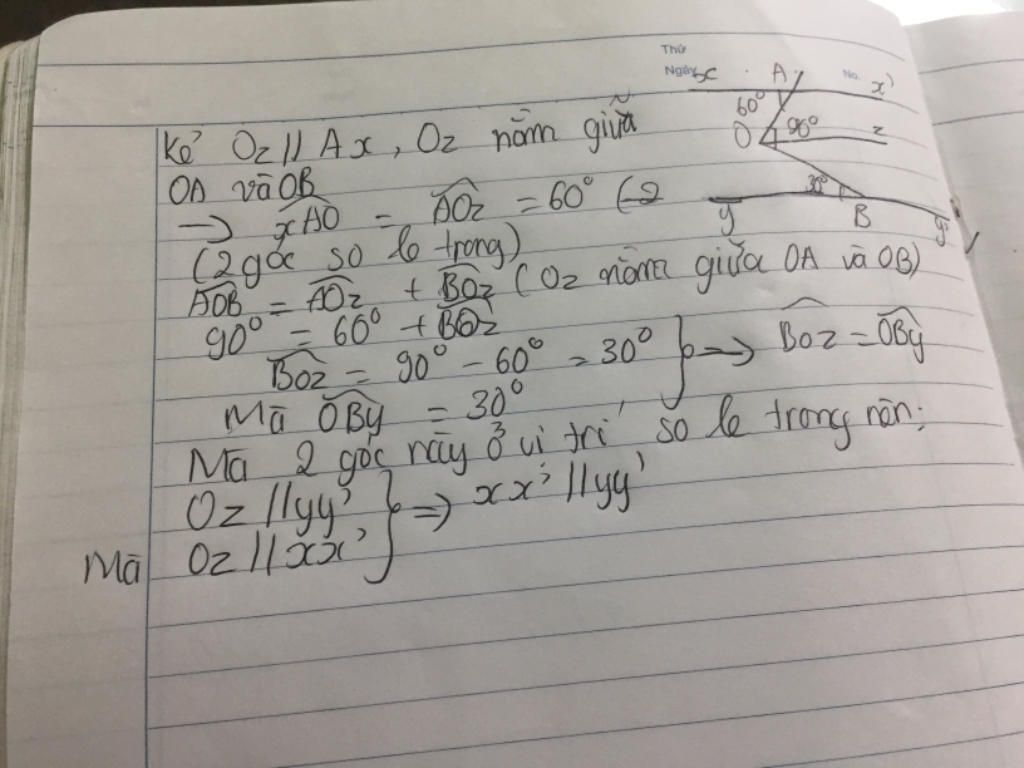 Thứ
Ngày
No.
x A x'
60°
O 90° z
30°
y B y'
Kẻ Oz // Ax , Oz nằm giữa
OA và OB
→ xAO = AOz = 60° (2
(2 góc so le trong)
AOB = AOz + BOz ( Oz nằm giữa OA và OB)
90° = 60° + BOz
BOz = 90° - 60° = 30° } => BOz = OBy
Mà OBy = 30°
Mà 2 góc này ở vị trí so le trong nên:
Oz // yy' } => xx' // yy'
Mà Oz // xx'